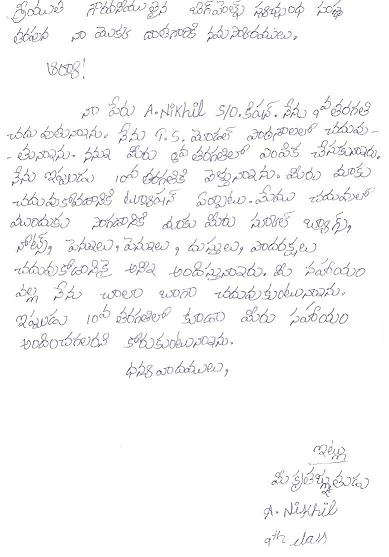 శ్రీయుత గౌరవనీయులైన బిగ్‌హెల్ప్ స్వచ్ఛంద సంస్థ
తరపున నా యొక్క దాతగారికి నమస్కారములు.
సార్!
నా పేరు A.Nikhil S/O.కిషన్. నేను 9వ తరగతి
చదువుతున్నాను. నేను T.S. మోడల్ పాఠశాలలో చదువు-
-తున్నాను. నన్ను మీరు 9వ తరగతిలో ఎంపిక చేసుకున్నారు.
నేను ఇప్పుడు 10వ తరగతికి వెళ్తున్నాను. మీరు మాకు
చదువుకోవడానికి ట్యూషన్ మేము చదువులో
ముందుకు మాకు మీరు బుక్స్,
నోట్స్, పెన్నులు, పెన్సిళ్లు, దుస్తులు,
చదువుకోవడానికి అన్ని అందిస్తున్నారు. మీ సహాయం
వల్ల నేను చాలా బాగా చదువుకుంటున్నాను.
ఇప్పుడు 10వ తరగతిలో కూడా మీరు సహాయం
అందించగలరని కోరుకుంటున్నాను.
ధన్యవాదములు,
ఇట్లు
మీ కృతజ్ఞతుడు
A. Nikhil
9th class